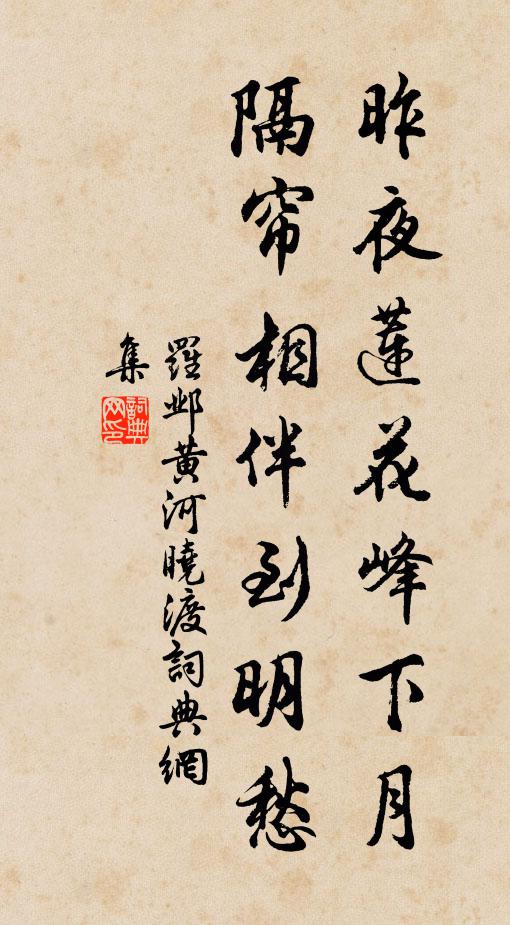 昨夜蓮花峰下月
隔帘相伴到明愁
羅鄴黄河曉渡詞典網
集
詞典
网印